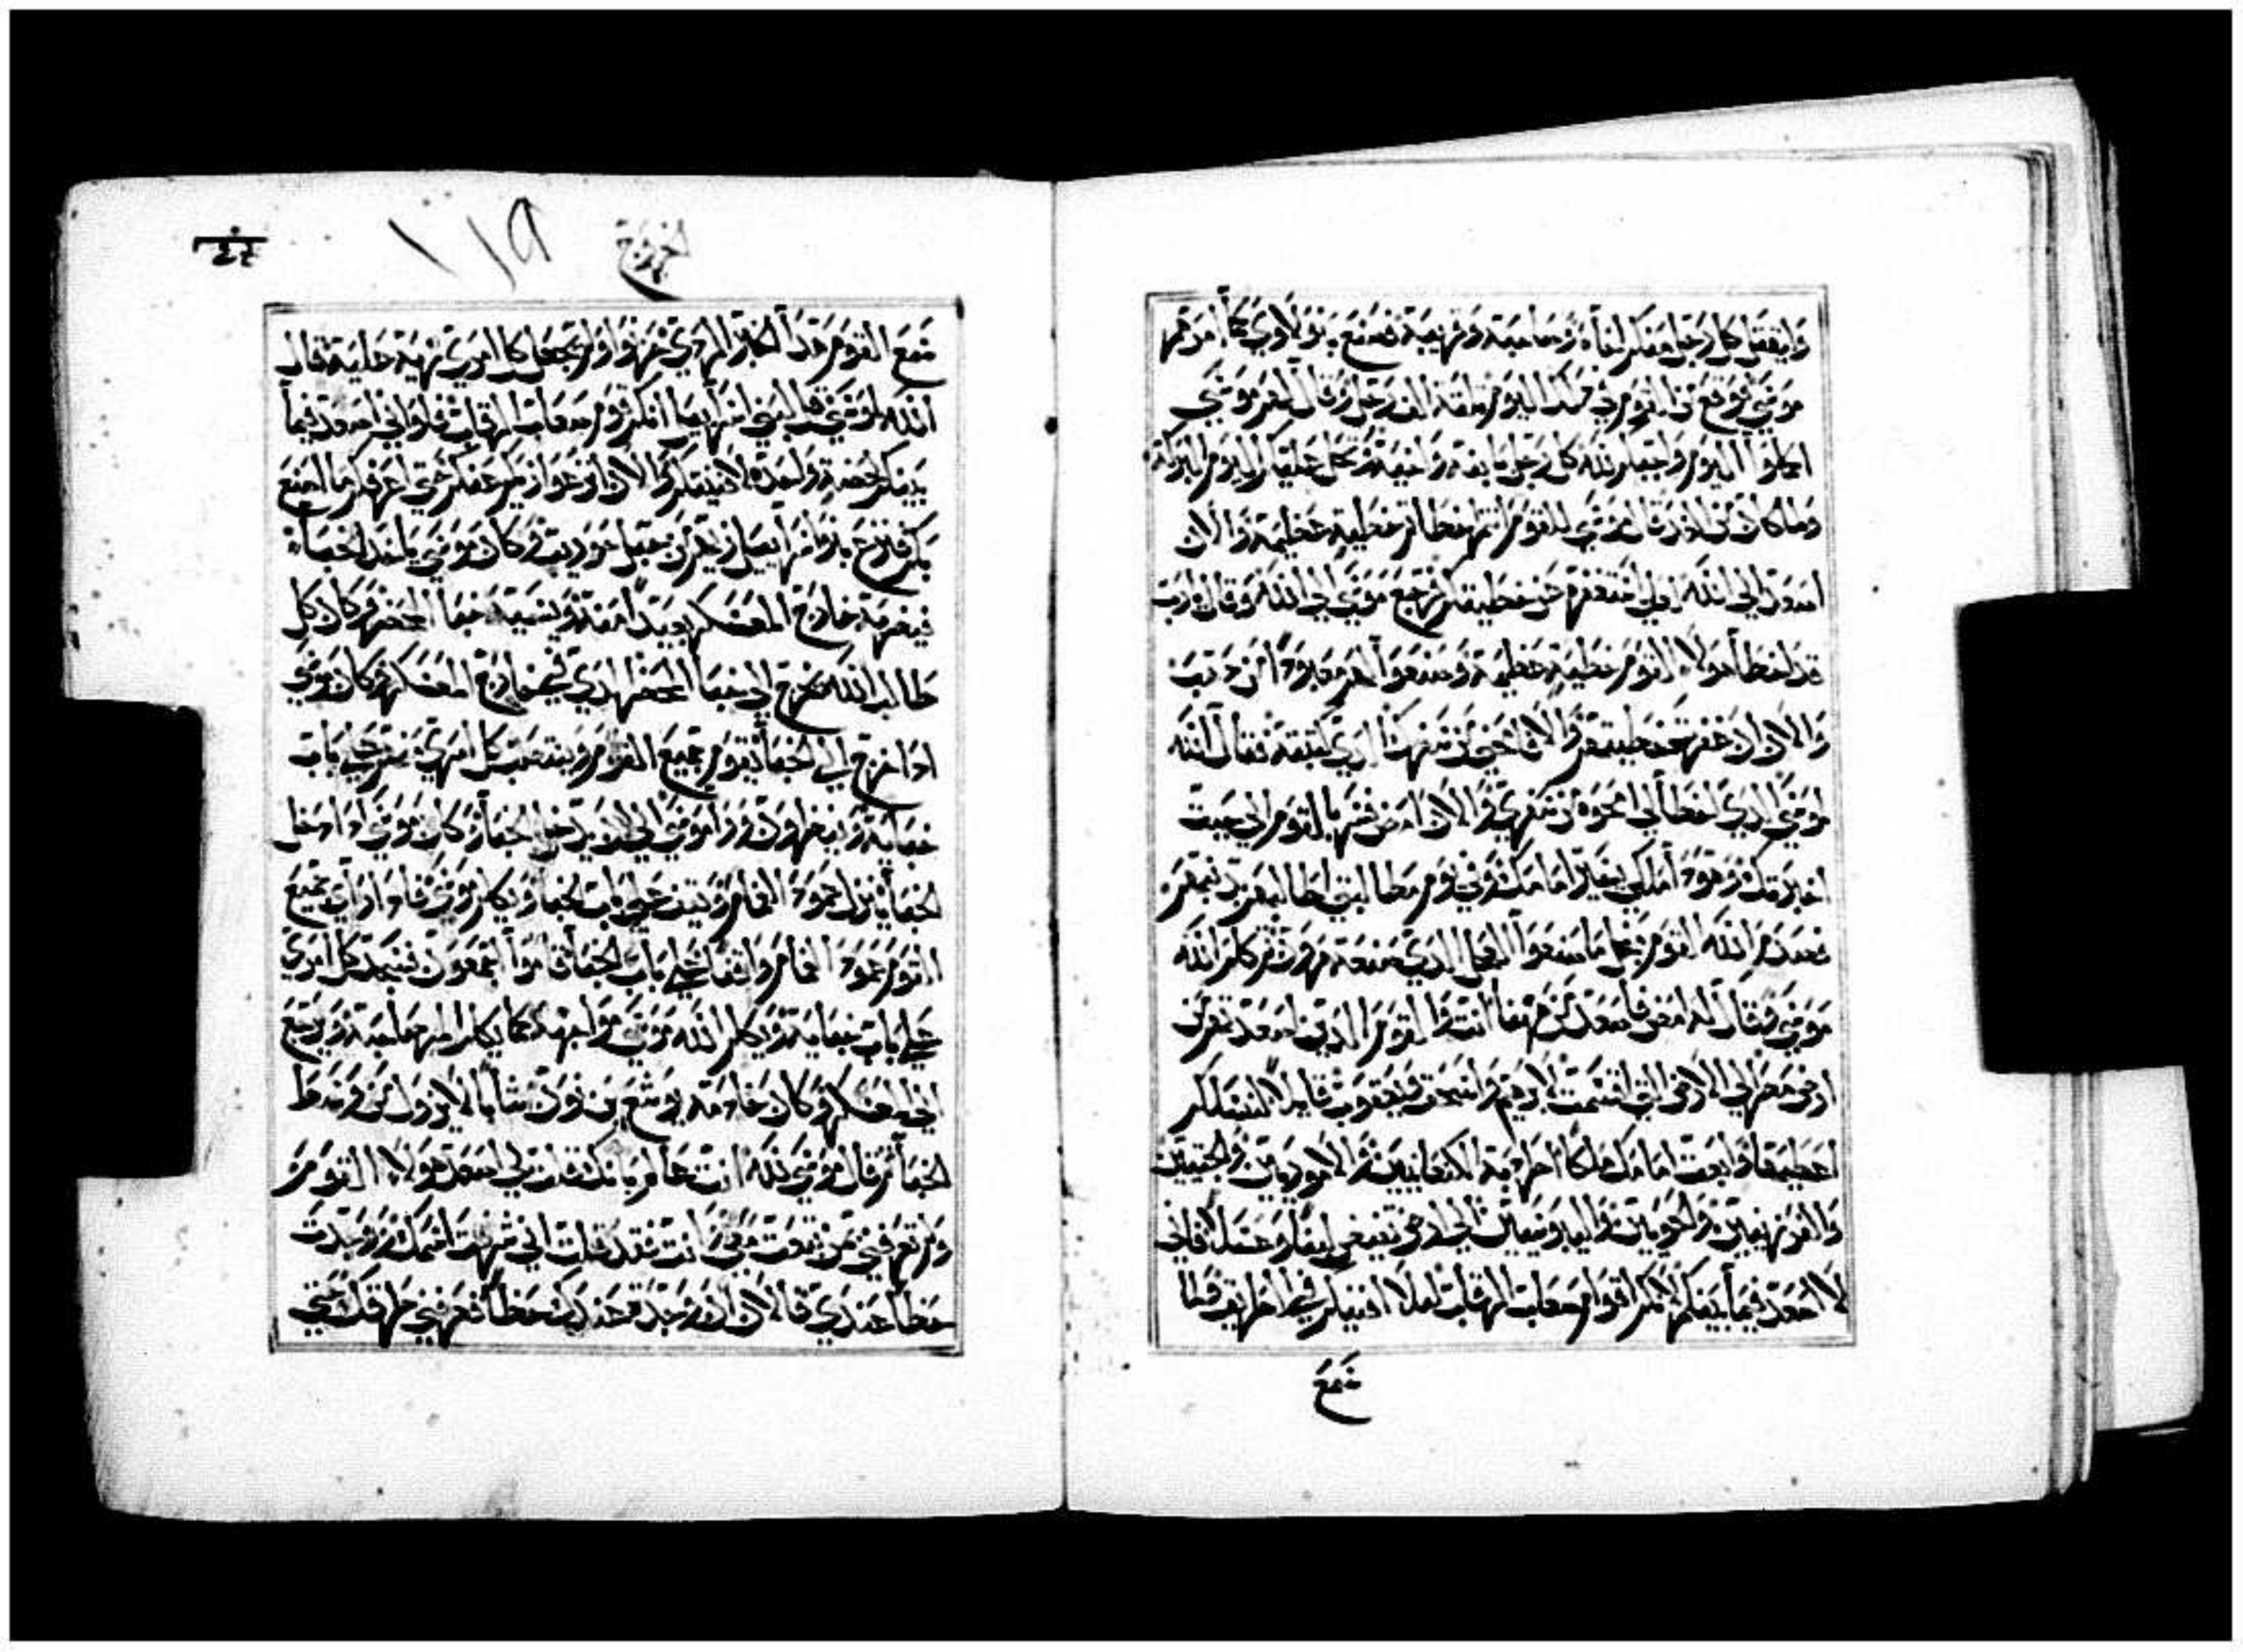 وليقتل كل رجل منكم اخاه وصاحبه وقريبه فصنع بنو لاوي كما امرهم
موسي فوقع من القوم في ذلك اليوم ثلثة الف رجل وقال لهم موسي
اكملوا اليوم وجبكم لله كل رجل بابنه واخيه لتحل عليكم اليوم البركة
وما كان من الغد قال موسي للقوم انتم اخطاتم خطية عظيمة والان
اصعد الي الله لعلي استغفره عن خطيتكم فرجع موسي الي الله وقال يارب
قد اخطا هولاء القوم خطية عظيمة وصنعوا لهم معبودا من ذهب
والان ان غفرت خطيتهم والا فامحني من سفرك الذي كتبته فقال الله
لموسي الذي اخطا لي امحوه من سفري والان امض فسر بالقوم الي حيث
اخبرتك وهوذا ملكي يسير امامك وفي يوم مطالبتي اطالبهم بذنبهم
فصدم الله القوم بما صنعوا العجل الذي صنعه هرون ثم كلم الله
موسي فقال له امض فاصعد من هنا انت والقوم الذين اصعدتهم من
ارض مصر الي الارض التي اقسمت لابرهيم واسحق ويعقوب قايلا لنسلكم
اعطيها وابعث امامك ملكا اطرد به الكنعانيين والاموريين والحتيين
والفرزيين والحويين واليبوسيين الي ارض تفيض لبنا وعسلا فاني
لا اصعد فيما بينكم لانكم قوم صعاب الرقاب ليلا افنيكم في الطريق فلما
سمع
الخروج
سمع القوم هذا الكلام الردي حزنوا ولم يجعل كل امري زينة حليه قال
الله لموسي قل لبني اسراييل انكم قوم صعاب الرقاب فلو اني اصعد فيما
بينكم لحضة واحدة لافنيتكم والان انزعوا زينتكم عنكم حتي اعرفكم ما اصنع
بكم فنزع بنوا اسراييل زينتهم من جبل حوريب وكان موسي ياخذ الخبا
فيضربه خارج المعسكر بعيدا منه ويسميه خبا المحضر وكان كل
طالب الله يخرج الي خبا المحضر الذي خارج المعسكر وكان موسي
اذا خرج الي الخبا يقوم جميع القوم وينتصب كل امري منهم علي باب
خبايه وينظرون ورا موسي الي ان يدخل الخبا وكان موسي اذا دخل
الخبا ينزل عمود الغمام ويقف علي باب الخبا ويكلم موسي فاذا راي جميع
القوم عمود الغمام واقفا علي باب الخبا قاموا اجمعون فسجد كل امري
علي باب خبايه ويكلم الله موسي مواجهة كما يكلم المر صاحبه ويرجع
الي المعسكر وكان خادمه يوشع بن نون شابا لا يزول من وسط
الخبا ثم قال موسي لله انت عالم بانك قلت لي اصعد هولا القوم
ولم تعرفني من تبعث معي وانت فقد قلت اني شهرت اسمك ووجدت
حظا عندي فالان ان وجدت عندك حظا فعرفني طرقك حتي